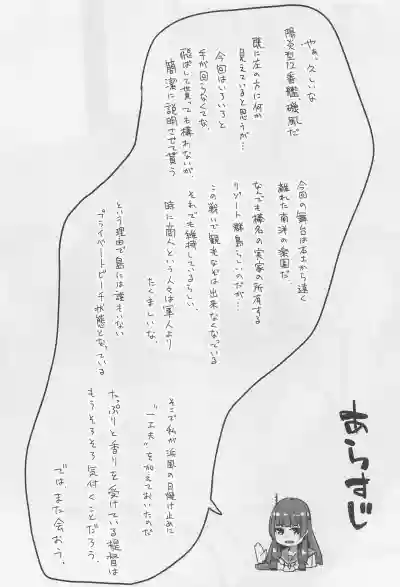 あらすじ
やぁ、久しいな
陽炎型12番艦、磯風だ
既に左の方に何か
見えていると思うが…
今回はいろいろと
手が回らなくてな、
飛ばして貰っても構わないが、
簡潔に説明させて貰う
今回の舞台は本土から遠く
離れた南洋の楽園だ。
なんでも榛名の実家の所有する
リゾート群島らしいのだが…
この戦いで観光などは出来なくなっている
それでも維持しているらしい、
時に商人という人々は軍人より
たくましいな。
という理由で島には誰もいない
プライベートビーチ状態となっている
そこで私が浜風の日焼け止めに
"一工夫"を加えておいたのだ
たっぷりと香りを受けている提督は
もうそろそろ気付くことだろう。
では、また会おう。